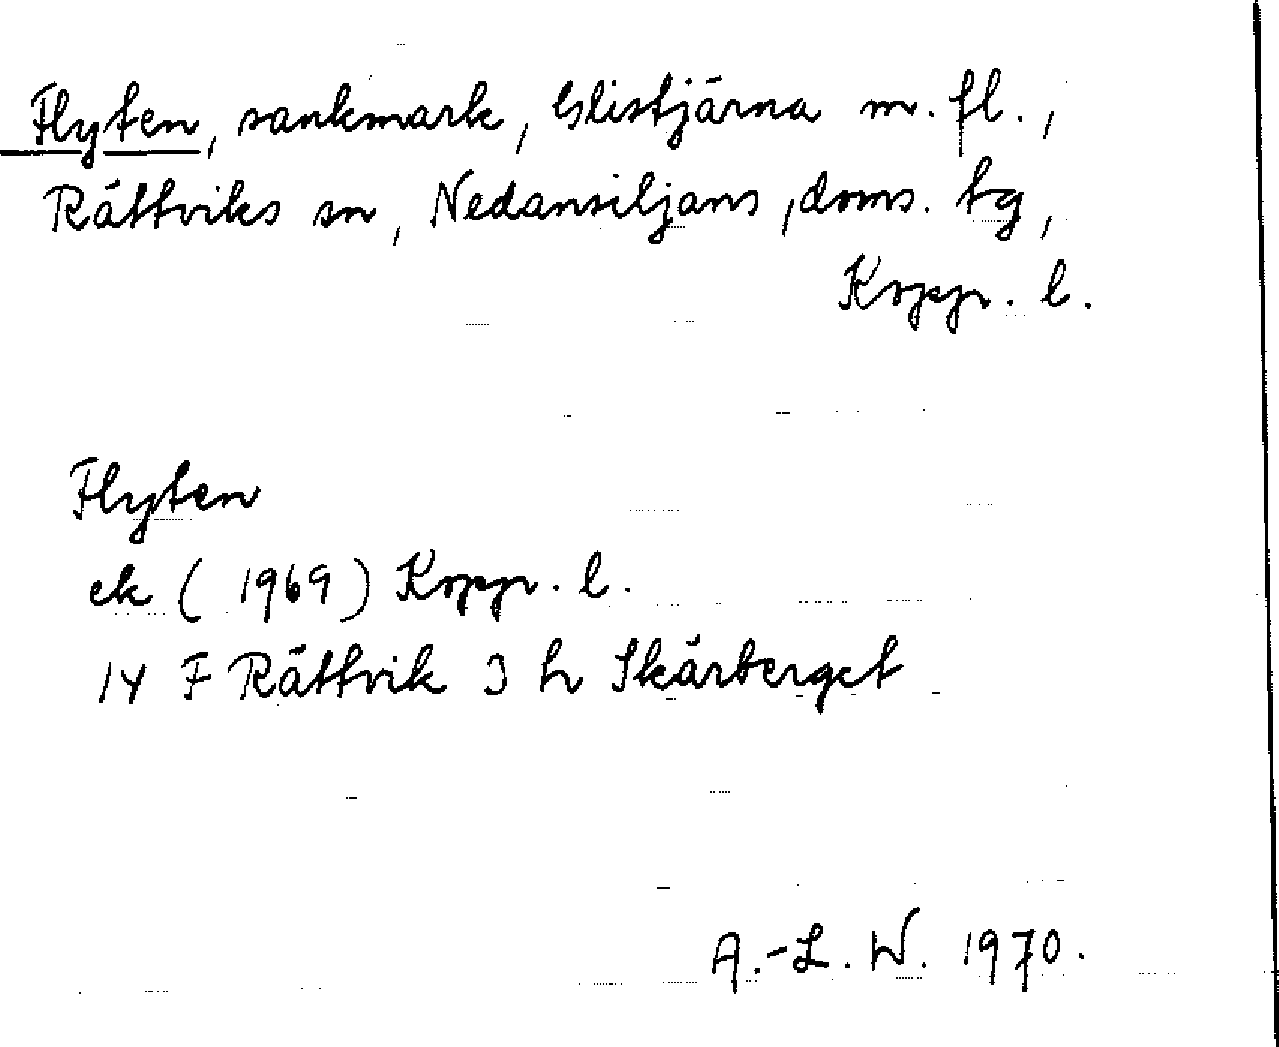 Flyten, sankmark, Glistjärna m. fl.,
Rättviks sn, Nedansiljans, doms. tg,
Kopp. l.
Flyten
ek (1969) Kopp. l.
14 F Rättvik 3 h Skärberget
A.-L. W. 1970.